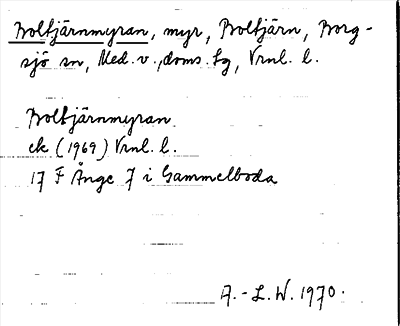 Boltjärnmyran, myr, Boltjärn, Borg-
sjö sn, Med. v., doms. tg, Vrnl. l.
Boltjärnmyran
ek (1969) Vrnl. l.
17 F Ånge 7 i Gammelboda
A.-L.W. 1970.